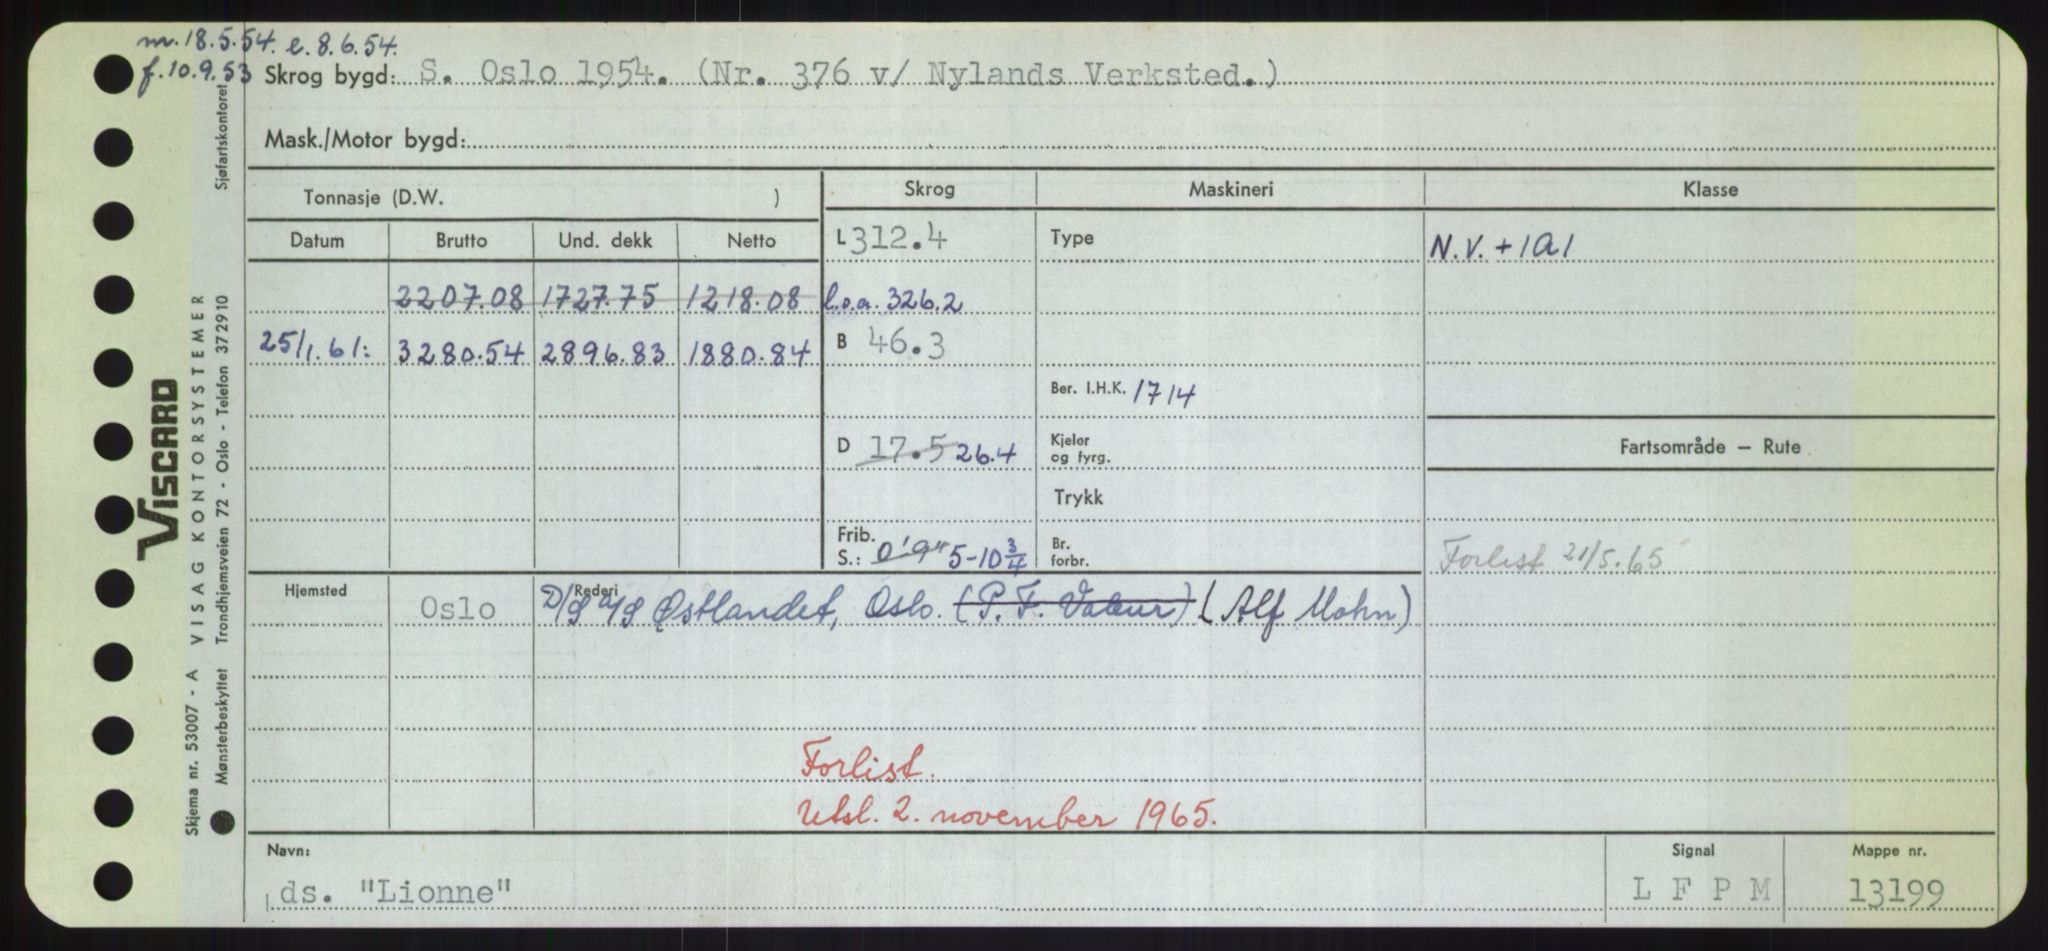 m. 18.5.54. e. 8.6.54.
f. 10.9.53 Skrog bygd: S. Oslo 1954. (Nr. 376 v/ Nylands Verksted.)
Mask./Motor bygd:
Tonnasje (D.W. ) Skrog Maskineri Klasse
Datum Brutto Und. dekk Netto L 312.4 Type N.V. + 1A1
2207.08 1727.75 1218.08 l.o.a. 326.2
25/1.61: 3280.54 2896.83 1880.84 B 46.3
Ber. I.H.K. 1714
D 17.5 26.4 Kjeler og fyrg. Fartsområde — Rute
Trykk
Frib. S.: 0'9" 5-10 3/4 Br. forbr. Forlist 21/5.65
Hjemsted Oslo Rederi D/S A/S Østlandet, Oslo. (P. F. Vatnur) (Alf Mohn)
Forlist.
Utsl. 2. november 1965.
Navn: Signal Mappe nr.
ds. "Lionne" L F P M 13199
VISCARD
Skjema nr. 53007 - A VISAG KONTORSYSTEMER
Mønsterbeskyttet Trondhjemsveien 72 - Oslo - Telefon 372910 Sjøfartskontoret